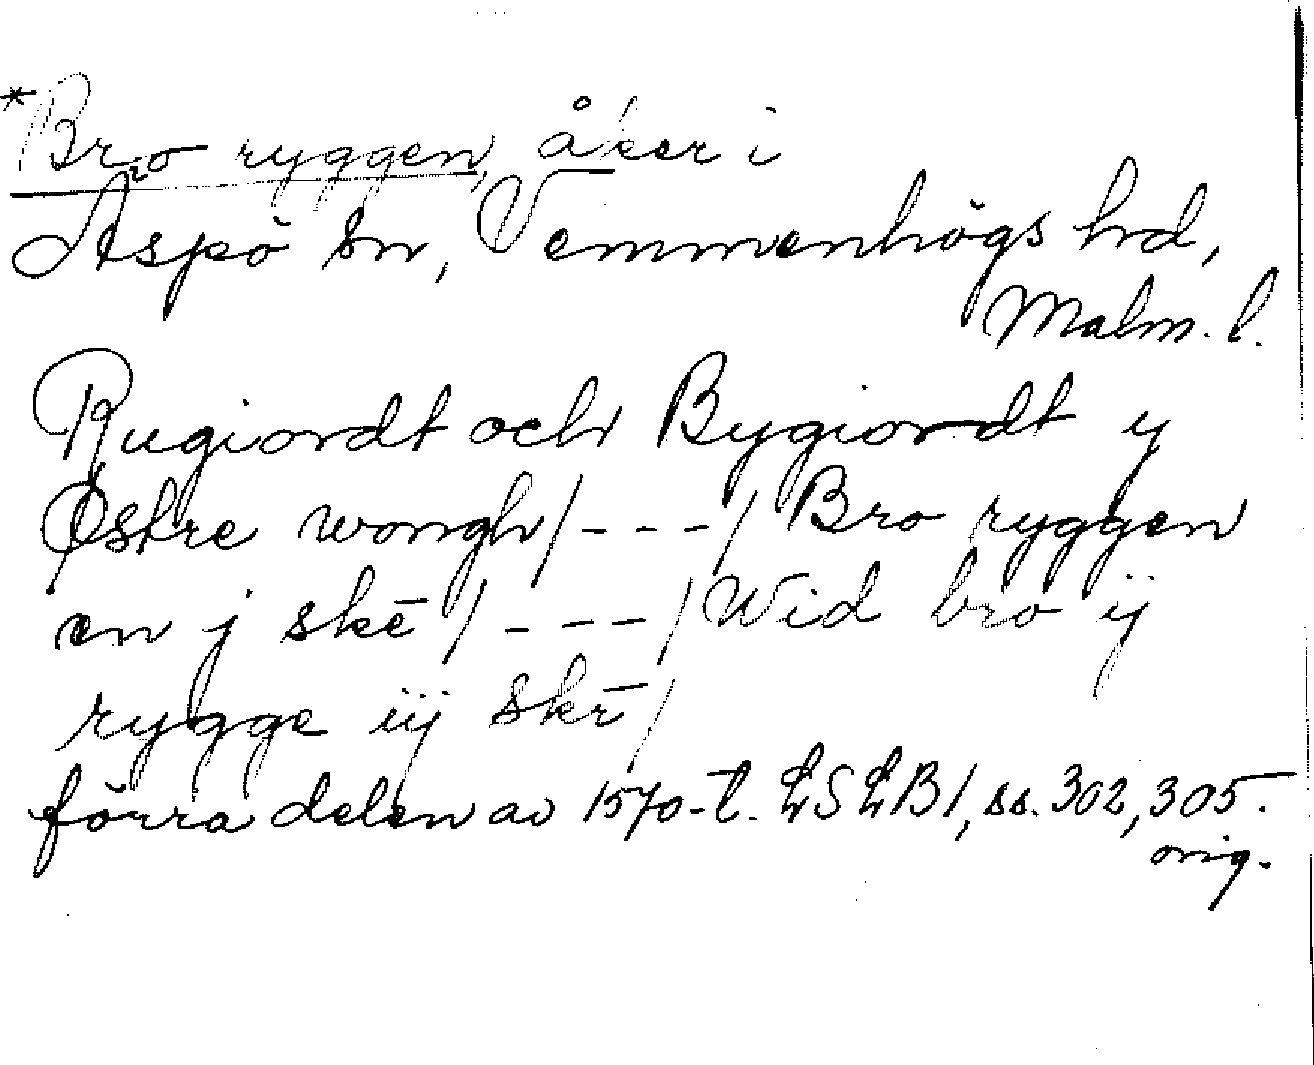 *Bro ryggen, åker i
Äspö sn, Vemmenhögs hd,
Malm. l.
Rugiordt och Bygiordt y
Østre wongh/---/ Bro ryggen
en j skē /---/ Wid bro ÿ
rygge iij skē/
förra delen av 1570-t. LSLB1, ss. 302, 305.
orig.